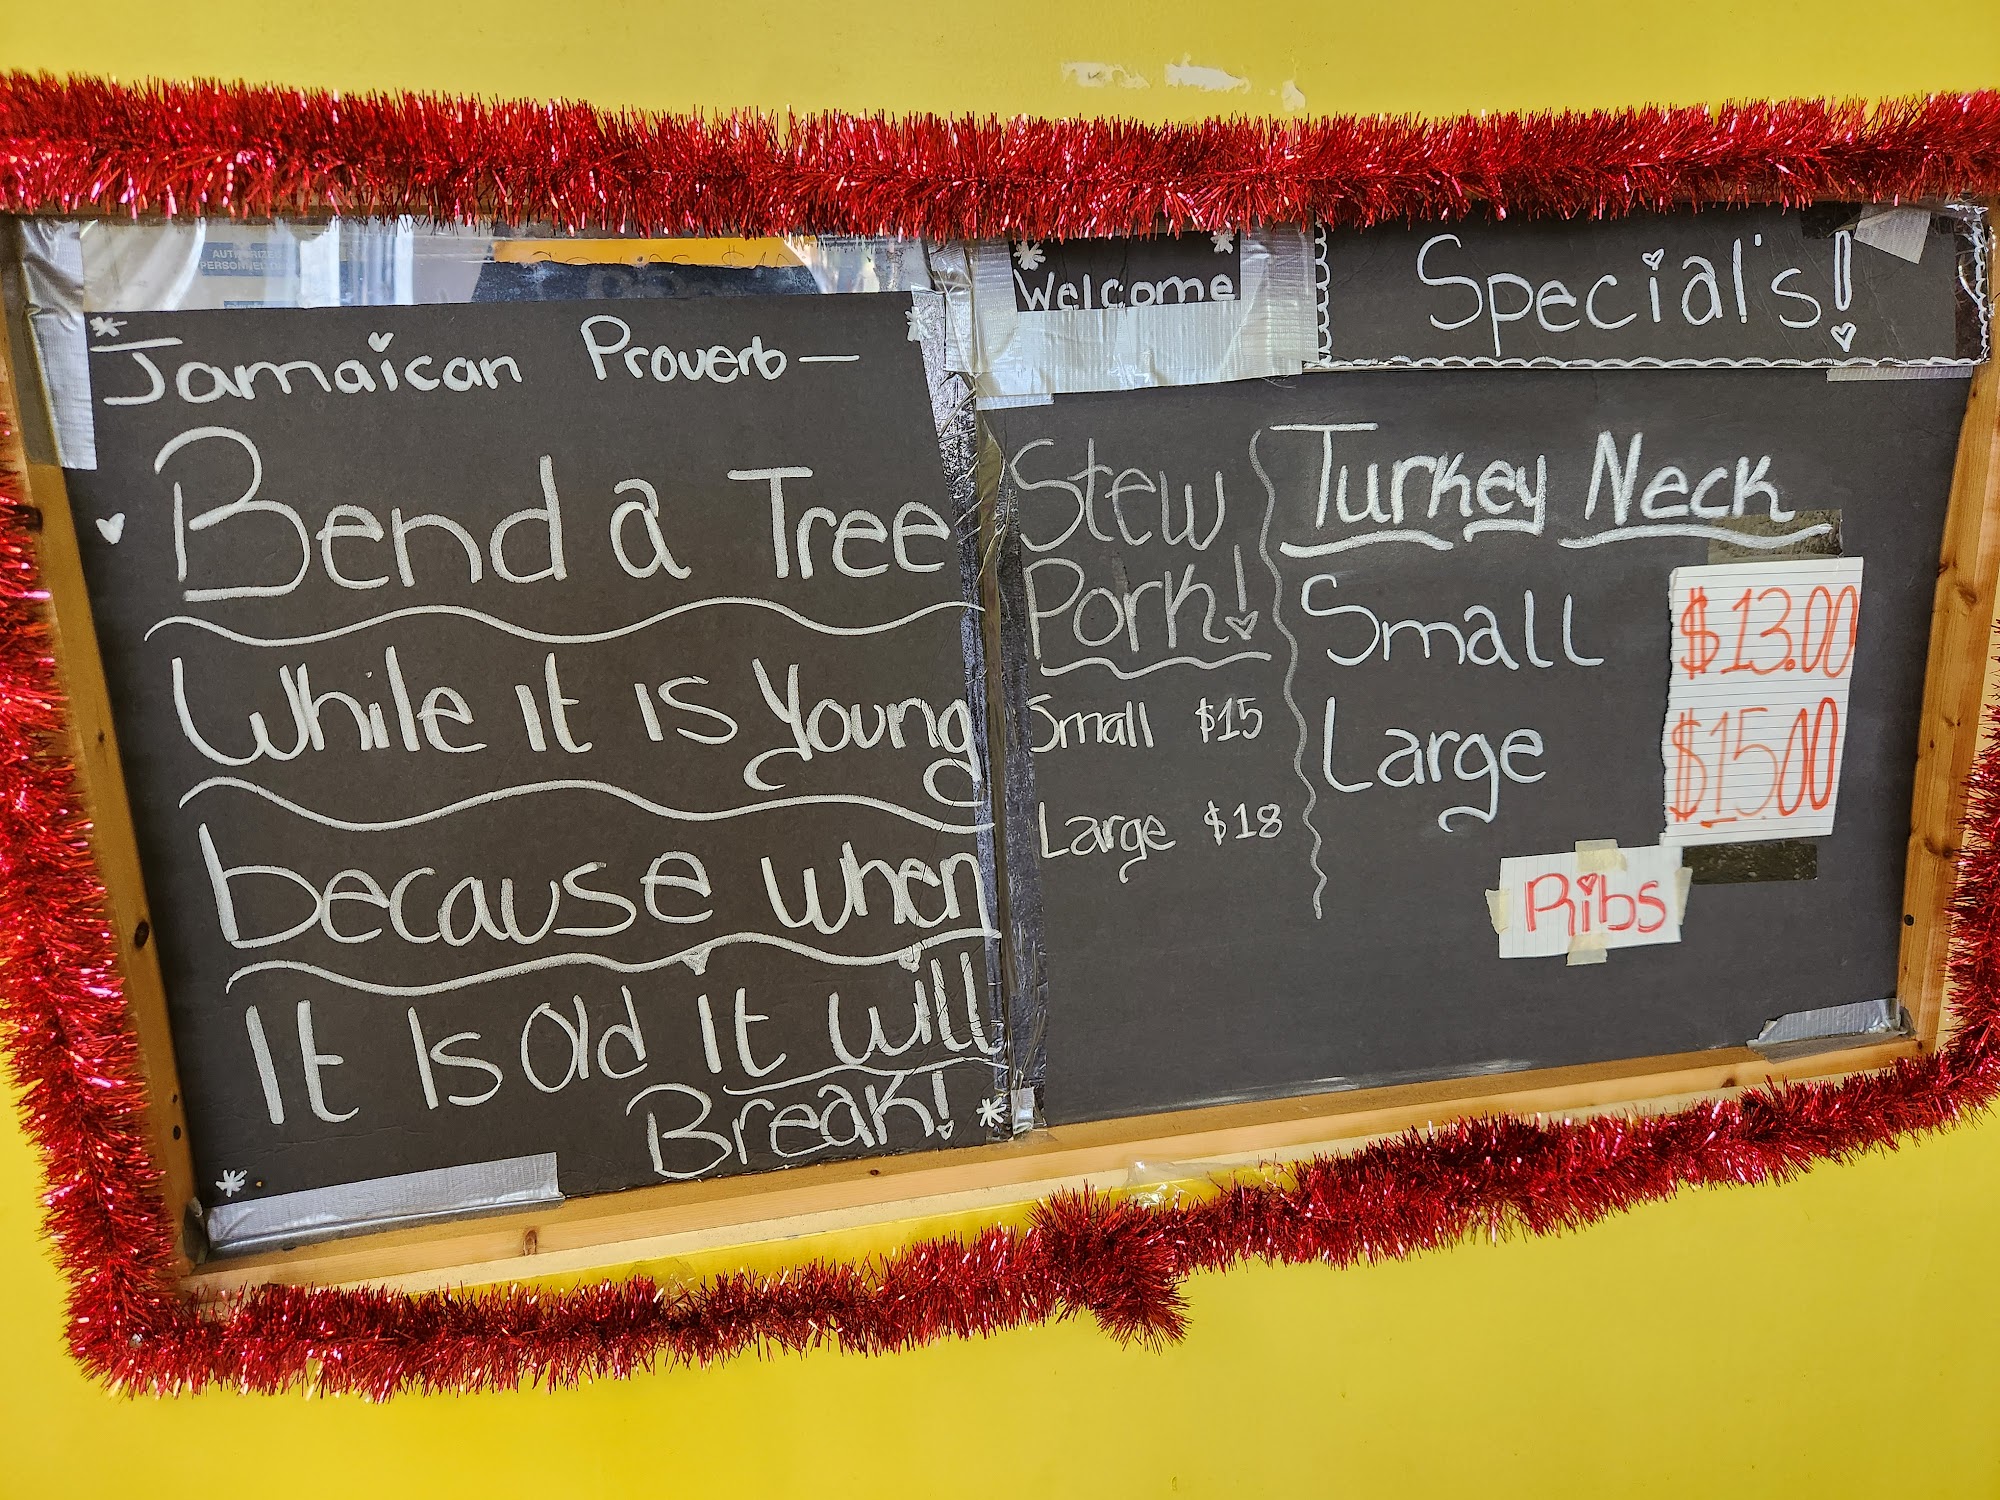 AUTHORIZED
PERSONNEL ONLY
Jamaican Proverb —
Bend a Tree
While It Is Young
because when
It Is Old It will
Break!
Welcome
Special's!
Stew
Pork!
Small $15
Large $18
Turkey Neck
Small $13.00
Large $15.00
Ribs